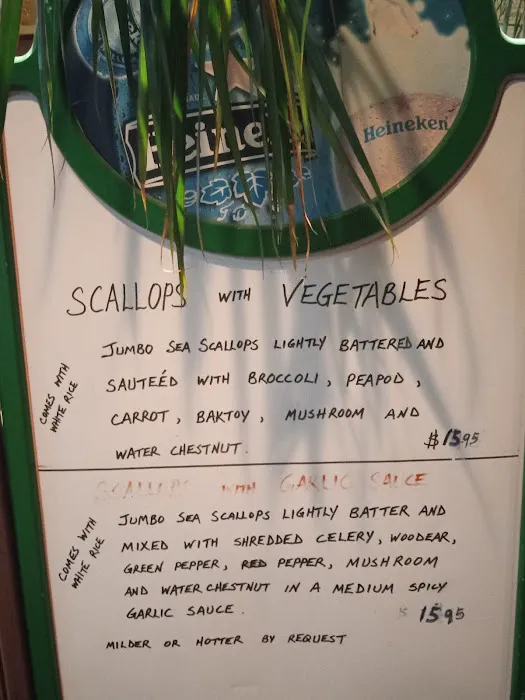 Heineken
SCALLOPS WITH VEGETABLES
JUMBO SEA SCALLOPS LIGHTLY BATTERED AND
SAUTEÉD WITH BROCCOLI, PEAPOD,
CARROT, BAKTOY, MUSHROOM AND
WATER CHESTNUT.
$15.95
COMES WITH
WHITE RICE
SCALLOPS WITH GARLIC SAUCE
JUMBO SEA SCALLOPS LIGHTLY BATTER AND
MIXED WITH SHREDDED CELERY, WOODEAR,
GREEN PEPPER, RED PEPPER, MUSHROOM
AND WATER CHESTNUT IN A MEDIUM SPICY
GARLIC SAUCE.
$ 15.95
COMES WITH
WHITE RICE
MILDER OR HOTTER BY REQUEST